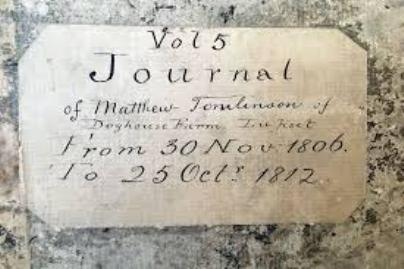 Vol 5
Journal
of Matthew Tomlinson of
Doghouse Farm Lupset
From 30 Nov. 1806.
To 25 Octr. 1812.